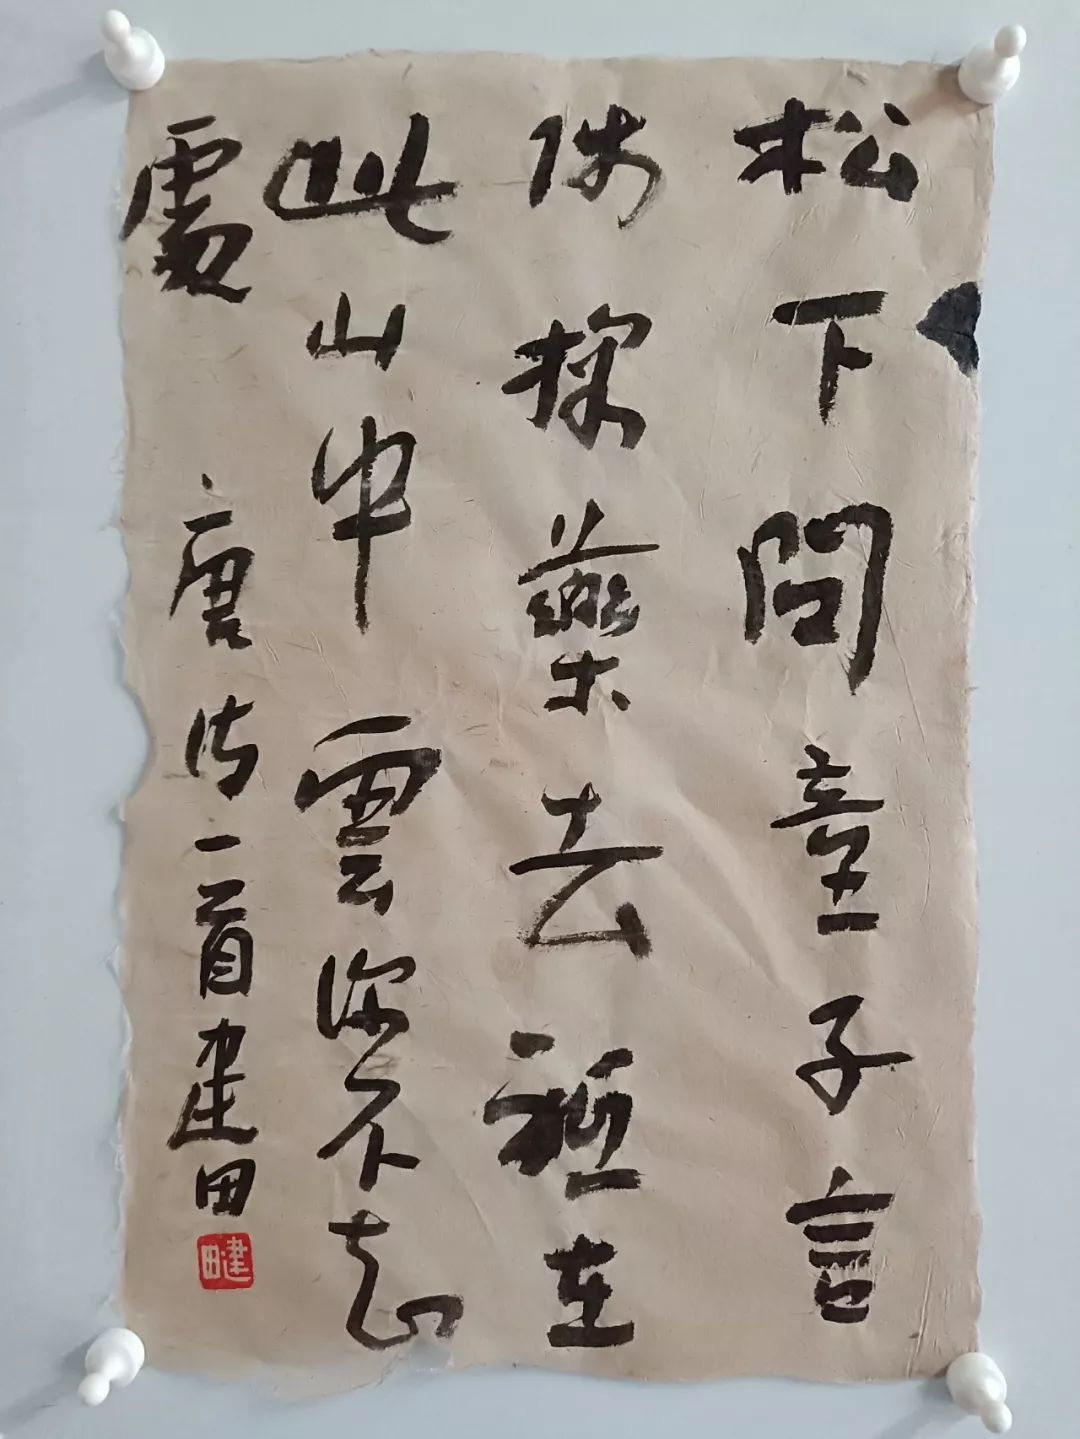 松下問童子言
師採藥去祗在
此山中雲深不知
處 唐詩一首建田
建田